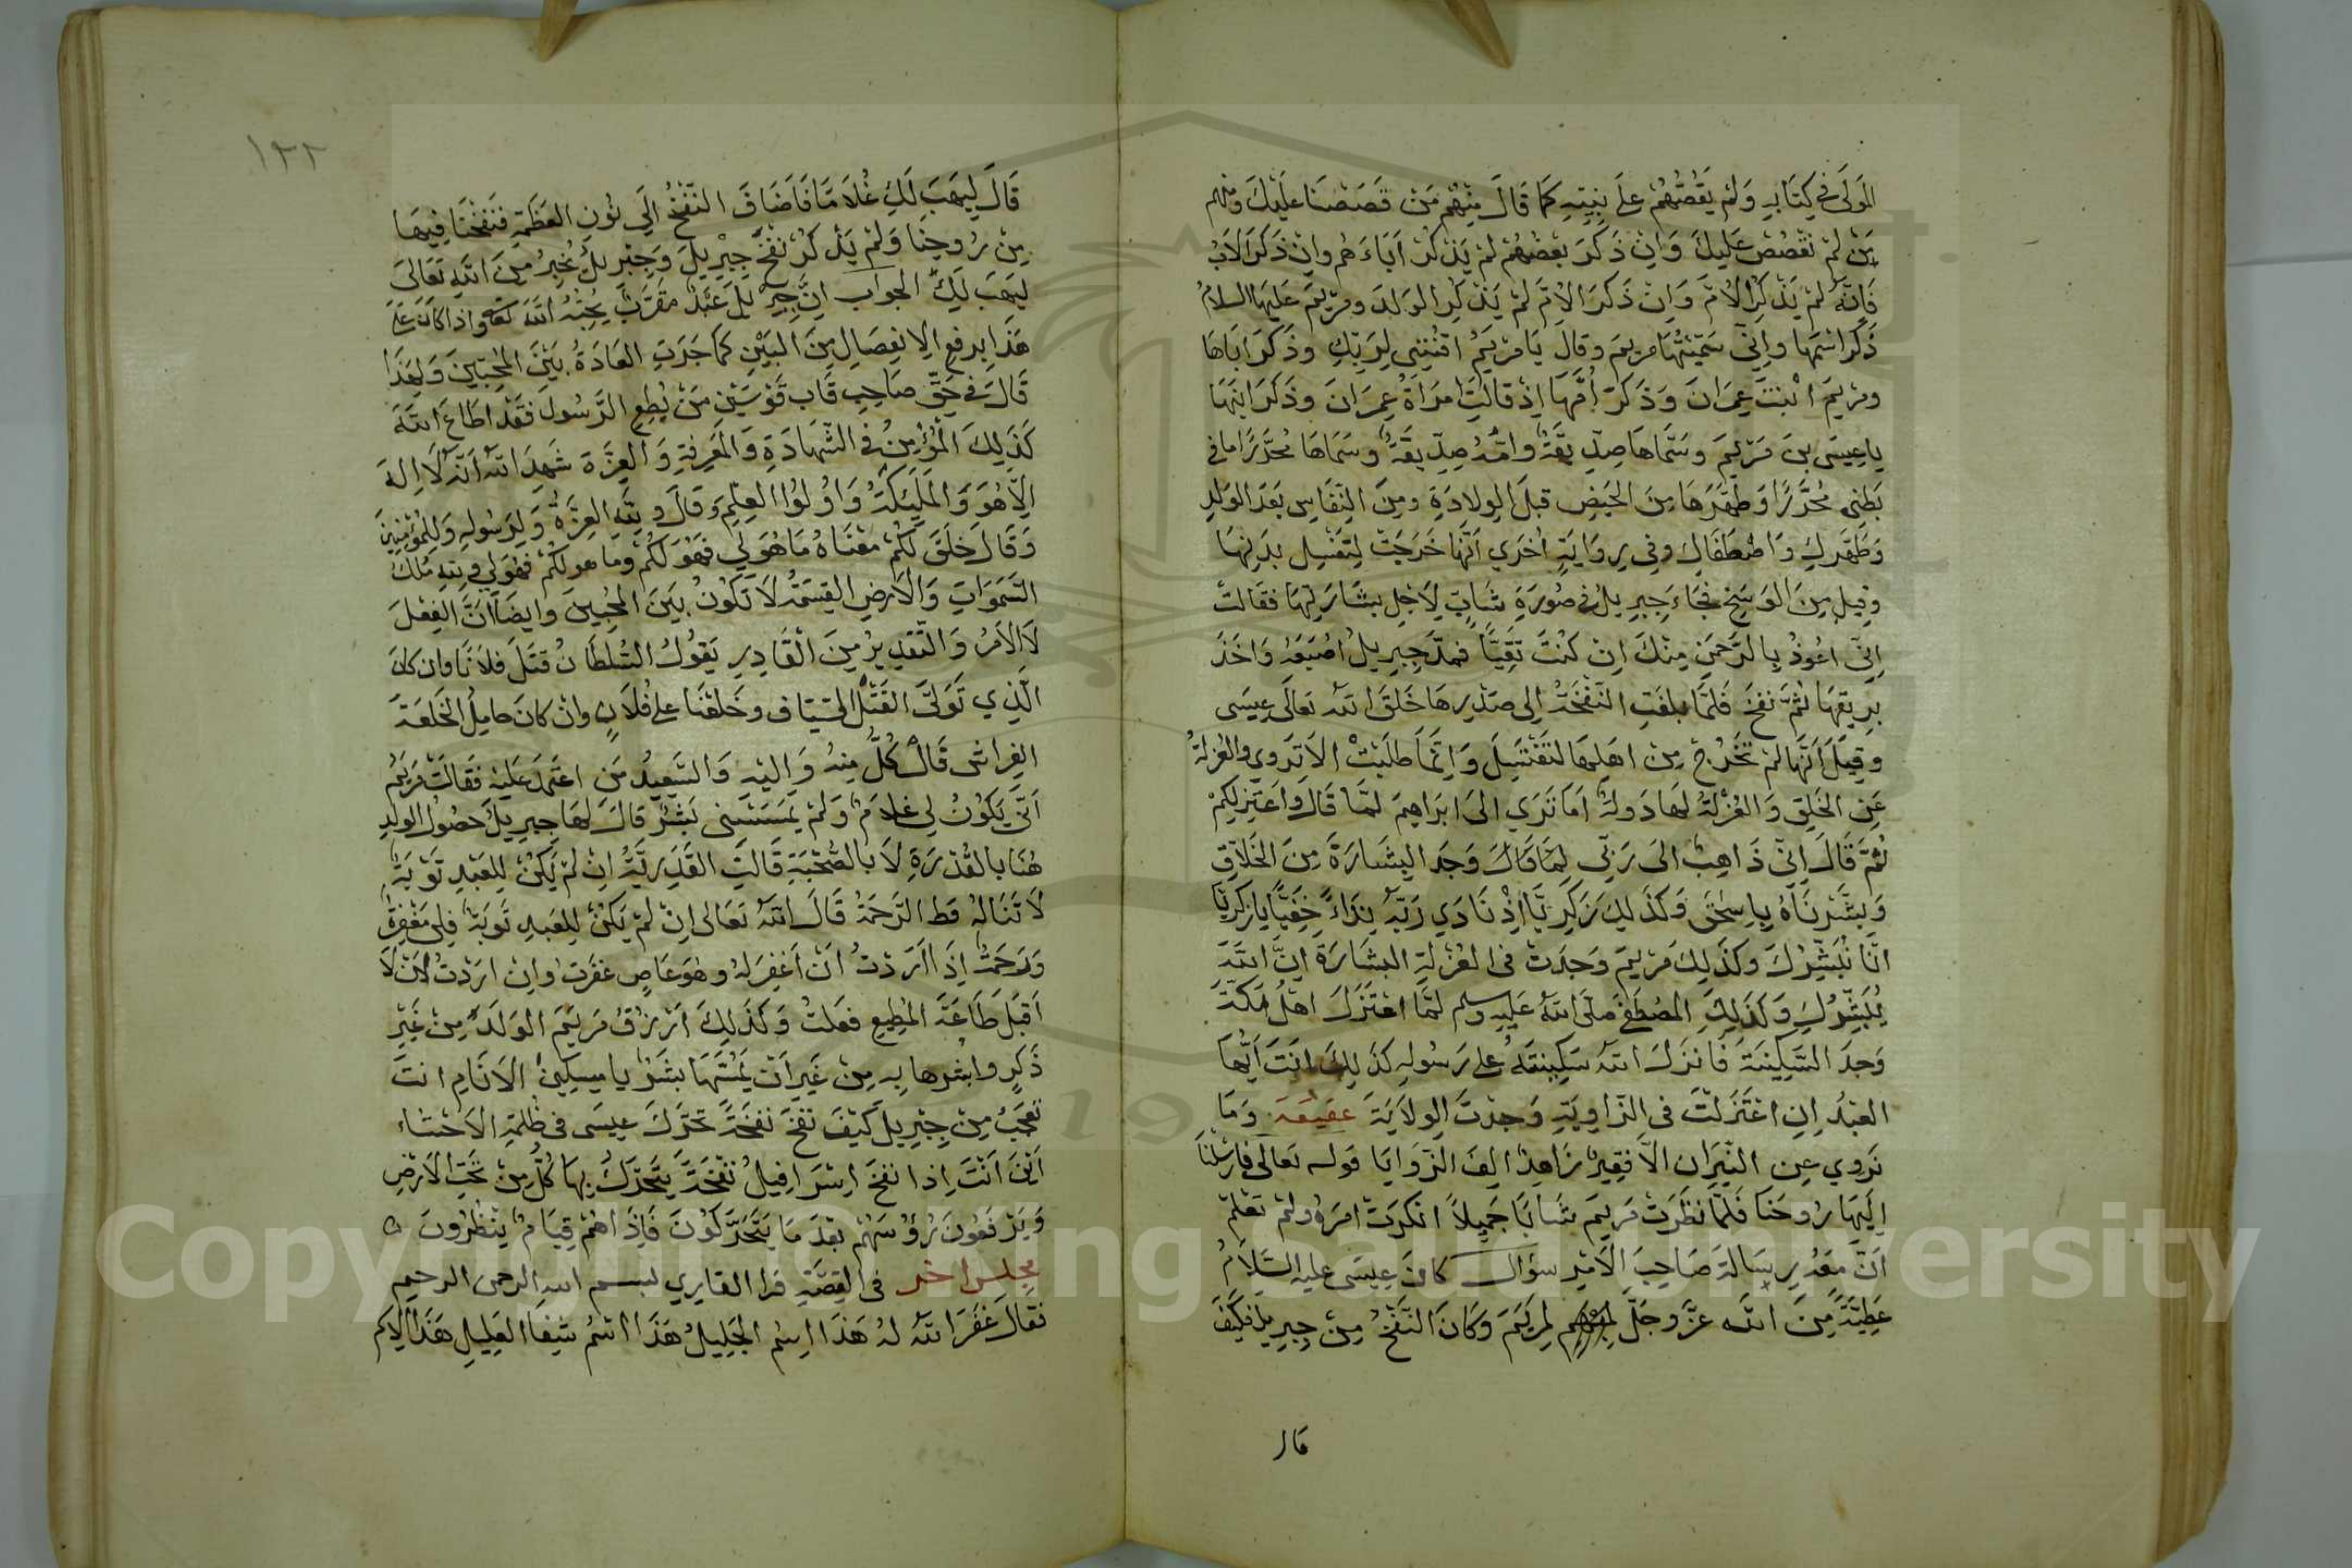 المَولَى فِي كِتَابِهِ وَلَمْ يَقُصُّهُمْ عَلَى نَبِيِّهِ كَمَا قَالَ مِنْهُم مَنْ قَصَصْنَا عَلَيْكَ ومنهم
مَنْ لَمْ نَقْصُصْ عَلَيكَ وَاِنْ ذَكَرَ بَعْضَهُمْ لَمْ يَذْكُرْ اَبَاءَهُم وان ذَكَرَ الاَبُ
فَاِنَّهُ لَمْ يَذْكُرِ الاُمَّ وَاِنْ ذَكَرَ الاُمَّ لَمْ يَذْكُرِ الوَلَدَ ومَريَمَ عَلَيهَا السلامُ
ذَكَرَ اسْمَهَا واِنِّي سَمَّيْتُهَا مَريَمَ وقالَ يَا مَرْيَمُ اقْنُتِي لِرَبِّكِ وذَكَرَ اَبَاهَا
ومَرْيَمَ ابْنَتَ عِمرَانَ وَذَكَرَ اُمَّهَا اِذْ قَالَتِ امْرَاَةُ عِمرَانَ وذَكَرَ ابنَهَا
يا عِيسَى بنَ مَريَمَ وسَمَّاهَا صِدِّيقَةً وامُّهُ صِدِّيقَةٌ وسَمَاهَا مُحَرَّرًا مَا فِي
بَطنِي مُحَرَّرًا وَطَهَّرَهَا مِنَ الحَيضِ قَبلَ الوِلادَةِ ومِنَ النِّفَاسِ بَعدَ الوَلَدِ
وَطَهَّرَكِ وَاصْطَفَاكِ وفِي رِوَايَةٍ اُخْرَي اَنَّهَا خَرَجَتْ لِتَغْسِلَ بَدَنَهَا
وقِيلَ مِنَ الوَسَخِ فَجَاءَ جِبرِيلُ فِي صُورَةِ شَابٍّ لِاَجلِ بِشَارَتِهَا فقَالَت
اِنِّي اعُوذُ بِالرَّحمَنِ مِنْكَ اِن كُنْتَ تَقِيًّا فمَدَّ جِبرِيلُ اصْبَعَهُ وَاَخَذَ
برِيقِهَا ثُمَّ نَفَخَ فَلَمَّا بلَغَتِ النَّفْخَةُ اِلى صَدْرِهَا خَلَقَ اللّه تعَالَى عِيسَى
وقِيلَ اَنَّهَا لَمْ تَخْرُجْ مِن اهلِهَا لتَغْتَسِلَ وَاِنَّمَا طَلَبَتْ الا تَرَوي والعُزلَةُ
عَنِ الخَلقِ وَالعُزْلَةُ لهَا دَولَةٌ اَمَا تَرَي الى ابرَاهِيمَ لمَّا قَالَ وَاَعتَزِلُكُمْ
ثُمَّ قَالَ اِنِّي ذَاهِبٌ الَى رَبِّي لمَّا قَالَ وَجَد البِشَارَةَ مِنَ الخَلاَّقِ
وَبشَّرْنَاهُ بِاِسْحَق وَكَذَلِكَ زَكَرِيَّا اِذْ نَادَي رَبَّهُ نِدَاءً خَفِيًّا يا زكريّا
انَّا نُبَشِّرُكَ وكَذَلِكَ مَرْيمَ وَجَدَتْ فِى العُزْلَةِ البشَارَةَ اِنَّ اللَّهَ
يُبَشِّرُكِ وَكَذَلِكَ المُصْطَفَى صَلَّى اللهُ عَلَيهِ وسلم لمَّا اعْتَزَلَ اهْلَ مَكَّةَ
وَجدَ السَّكِينَةَ فَاَنزَلَ اللّه سَكِينَتَهُ عَلى رَسُولِهِ كذَلِكَ انْتَ اَيُّهَا
العَبْدُ اِنِ اعْتَزَلْتَ فِى الزَّاوِيَةِ وَجدْتَ الوِلاَيَةَ عقيقة وَمَا
نَروي عِنِ النِّيرَان الاَّ فقِيرٌ زَاهِدٌ اَلِفَ الزَّوَايَا قوله تعَالَى فَارسَلْنَا
اِلَيهَا رُوحَنَا فَلَمَّا نظَرَتْ مَريَمَ شَابًّا جَمِيلاً انْكَرَت امرَهُ ولَمْ تَعْلَمْ
اَنَّ مَعَهُ رِسَالَةَ صَاحِبَ الاَمْرِ سؤال كانَ عِيسَى عليهِ السَّلاَمُ
عَطِيَّةً مِنَ اللّه عَزَّ وجَلَّ لِمَريَمَ وَكَانَ النَّفْخُ مِن جِبرِيلَ فكَيفَ
قال
١٢٢
قَالَ لِيَهَبَ لَكِ غُلاَمًا فَاَضَافَ النَّفْخُ الَي نُونِ العَظَمَةِ فَنَفَخْنَا فِيهَا
مِنْ رُوحِنَا وَلَمْ يَذْكُرْ نَفْخَ جِبْرِيلَ وَجِبْرِيلُ يُخْبِرُ مِنَ اللّهِ تعَالَى
ليَهَبَ لَكِ الجواب انَّ جِبْرِيلَ عَبْدٌ مُقَرَّبٌ يُحِبُّهُ اللَّهُ تعَا واذا كَانَ عَلَى
هَذَا يَرفع الاِنفِصَالِ مِنَ البَيْنِ كمَا جَرَتِ العَادَةُ بَيْنَ المُحِبِّينَ وَلِهَذَا
قَالَ فِي حَقِّ صَاحِبِ قَابَ قَوْسَيْنِ مَنْ يُطِعِ الرَّسُولَ فقَدْ اَطَاعَ اللّهَ
كذَلِكَ الْمُؤْمِنُ فِى الشَّهَادَةِ وَالمَعرِفَةِ وَالعِزَّةِ شَهِدَ اللّه اَنَّهُ لاَ اِلهَ
اِلاَّ هُوَ وَالمَلَئِكَةُ وَاُولُوا العِلْمِ وَقَالَ وَلِلَّهِ العِزَّةُ وَلِرَسُولِهِ وَلِلمُؤْمِنِينَ
وَقَالَ خَلَقَ لَكُمْ مَعْنَاهُ مَا هُوَ لِي فَهُوَ لَكُمْ وما هو لكُمْ فَهُوَ لِي وَلِلَّهِ مُلْكُ
السَّمَوَاتِ وَالاَرضِ القِسْمَةُ لاَ تَكُونُ بَينَ المُحِبِّينَ وايضًا اَنَّ الفِعْلَ
لاَ الاَمرُ وَالتَّقدِيرُ مِنَ القَادِرِ يَقُولُ السُّلطَانُ قتَلَ فلاَنًا وان كانَ
الَّذِي تَوَلَّى القَتْلَ السَّيَّاف وخَلَعْنَا علَى فُلاَنٍ وانْ كانَ حامِلُ الخَلعَة
الفِرَاش قَالَ كُلٌّ مِنهُ وَاِليْهِ وَالسَّعِيدُ مَن اعتَمَدَ عَلَيهِ فقَالَتْ مَريَمُ
اَنَّى يَكُونُ لِي غلاَمٌ وَلَمْ يَمْسَسْنِى بَشَرٌ قالَ لهَا جِبرِيلُ حصُولُ الولدِ
هُنَا بالقُدْرَةِ لاَ بالصُّحْبَةِ قَالَتِ القَدَرِيَّةُ اِنْ لَمْ يَكُنْ لِلعَبْدِ تَوْبَةٌ
لاَ تَنَالهُ قط الرَّحمَةُ قَالَ اللّهُ تعَالى اِنْ لَمْ يَكُنْ لِلعَبدِ تَوبَةٌ فَلِى مَغْفِرَةٌ
وَرَحْمَةٌ اِذَا اَرَدْتُ اَنْ اَغْفِرَ لَهُ وهُوَ عَاصٍ غفَرتُ وانْ ارَدْتُ لاَنْ لاَ
اَقبَلَ طَاعَةَ المُطِيعِ فعَلتُ وَكَذَلِكَ اَرْزُقُ مَريَمَ الوَلَدَ مِنْ غَيْرِ
ذَكَرٍ وابشرها بِهِ مِنْ غَيرِ اَنْ يَمَسَّهَا بشَرٌ يا مِسكِينُ الاَنَامِ انتَ
تعجَبُ مِنْ جِبْرِيلَ كَيْفَ نَفَخَ نَفْخَةً تَحَرَّكَ عِيسَى فِى ظُلمَةِ الاَحشَاء
اَيْنَ اَنْتَ اِذا نفَخَ اِسْرَافِيلُ نفْخَةً يتَحَرَّكُ بِهَا كُلُّ مَنْ تَحْتِ الاَرْضِ
وَيَرْفَعُونَ رُؤُسَهُمْ بعْدَ مَا يَتَحَرَّكُونَ فَاِذَا هُمْ قِيَامٌ يَنْظُرُونَ ه
مجلس اخر فى القِصَّةِ قرا القارِي بسم اللهِ الرحمن الرحيم
فقَالَ غَفَرَ اللّهُ لهُ هَذَا اِسْمُ الجَلِيلُ هَذَا اسْمُ شِفَا العَلِيلِ هَذَا الاسم